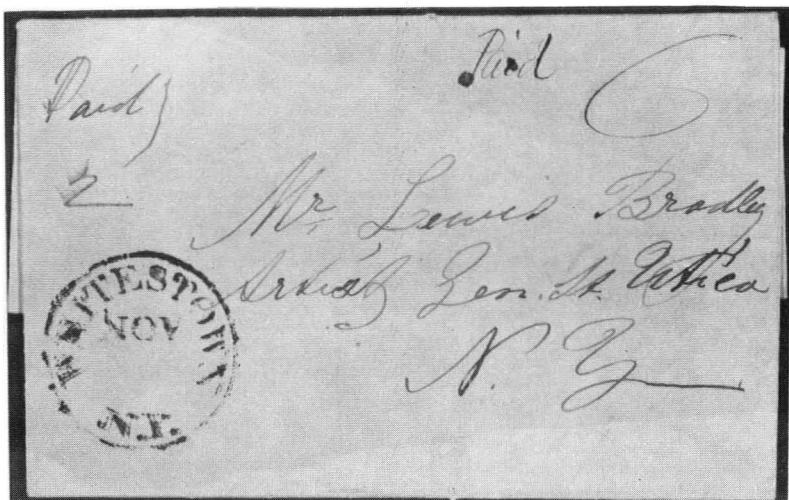 Paid
Paid 6
2
Mr. Lewis Bradley
Artist Gen. St. Utica
N. Y
WHITESTOWN
NOV
N.Y.